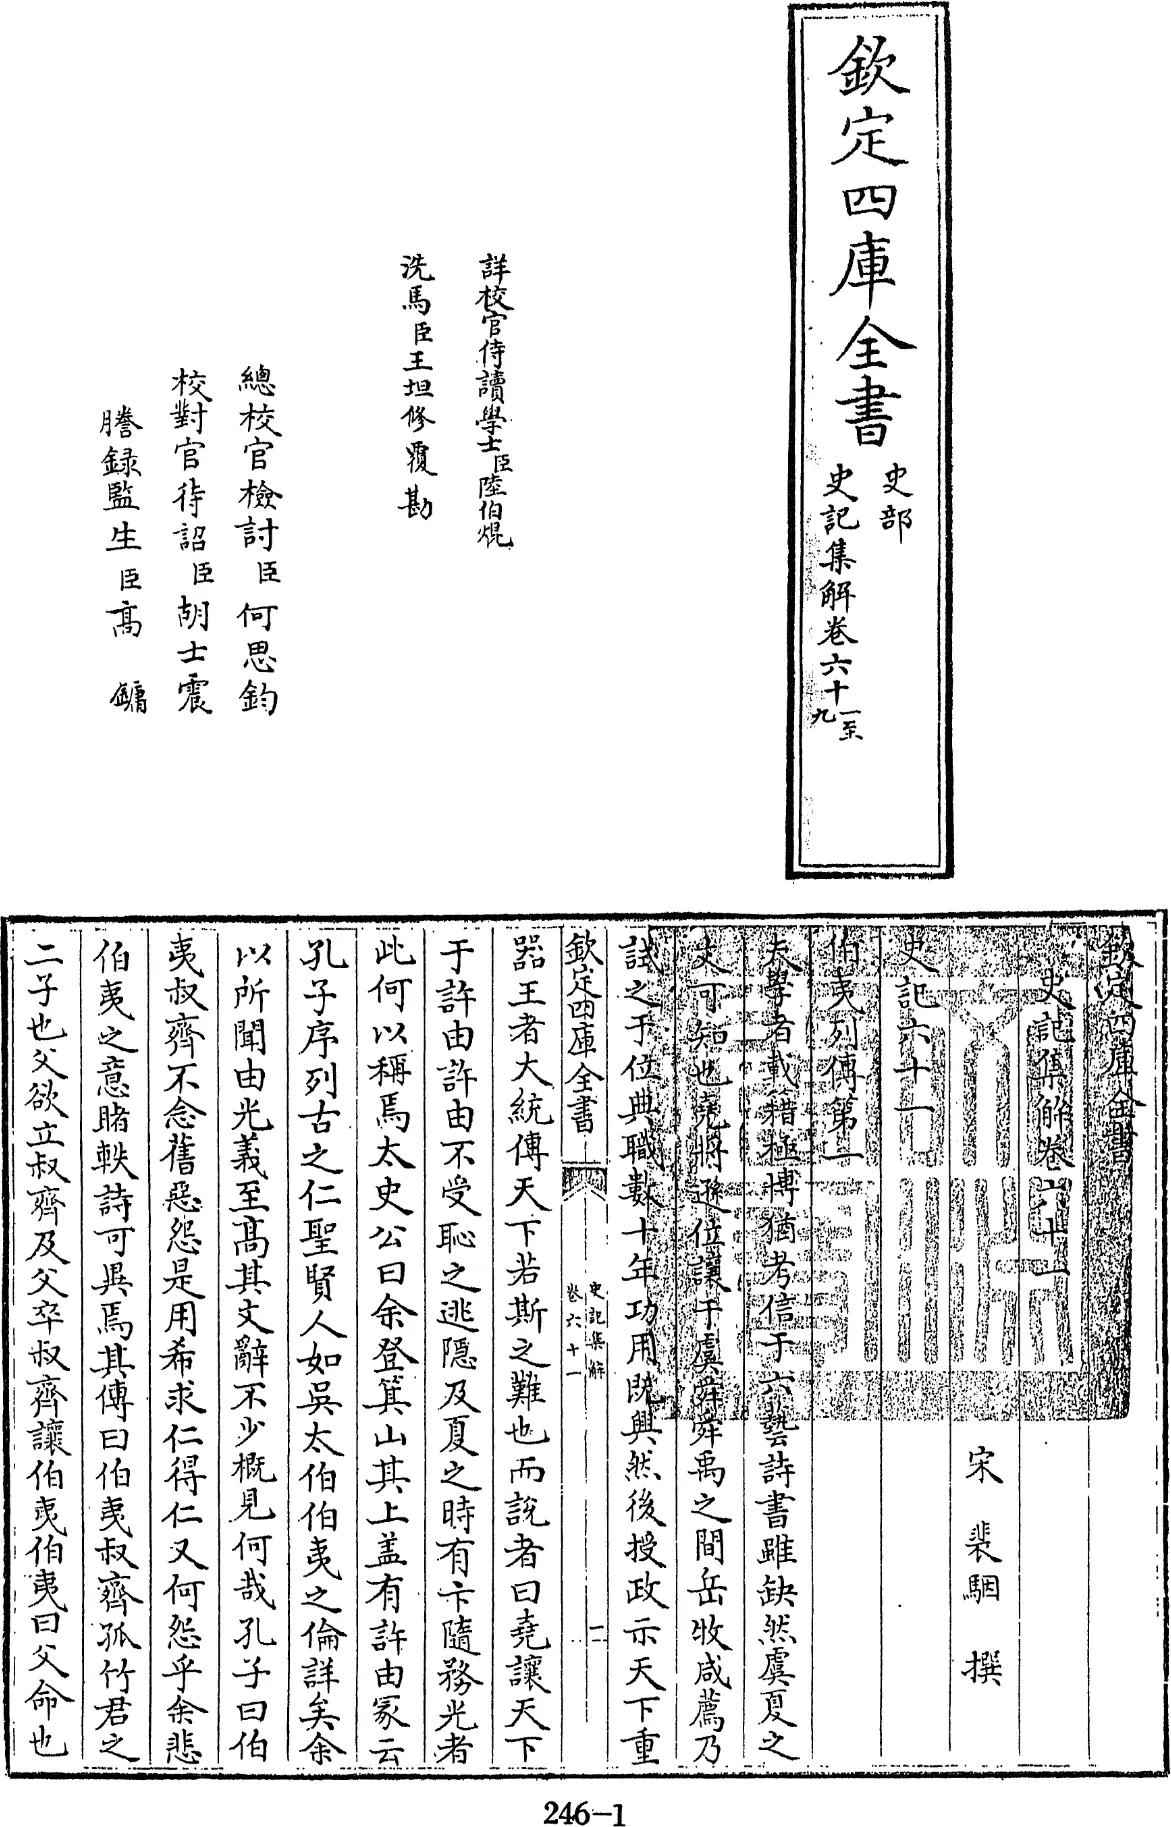 欽定四庫全書
史部
史記集解卷六十一至九
詳校官侍讀學士臣陸伯焜
洗馬臣王坦修覆勘
總校官檢討臣何思鈞
校對官待詔臣胡士震
謄録監生臣高鏞
欽定四庫全書
史記集解卷六十一
宋裴駰撰
史記六十一
伯夷列傳第一
夫學者載籍極博猶考信于六藝詩書雖缺然虞夏之
文可知也堯將遜位讓于虞舜舜禹之間岳牧咸薦乃
試之于位典職數十年功用既興然後授政示天下重
欽定四庫全書
史記集解
卷六十一
器王者大統傳天下若斯之難也而說者曰堯讓天下
于許由許由不受恥之逃隱及夏之時有卞隨務光者
此何以稱焉太史公曰余登箕山其上盖有許由冢云
孔子序列古之仁聖賢人如吳太伯伯夷之倫詳矣余
以所聞由光義至髙其文辭不少概見何哉孔子曰伯
夷叔齊不念舊惡怨是用希求仁得仁又何怨乎余悲
伯夷之意睹軼詩可異焉其傳曰伯夷叔齊孤竹君之
二子也父欲立叔齊及父卒叔齊讓伯夷伯夷曰父命也
246-1